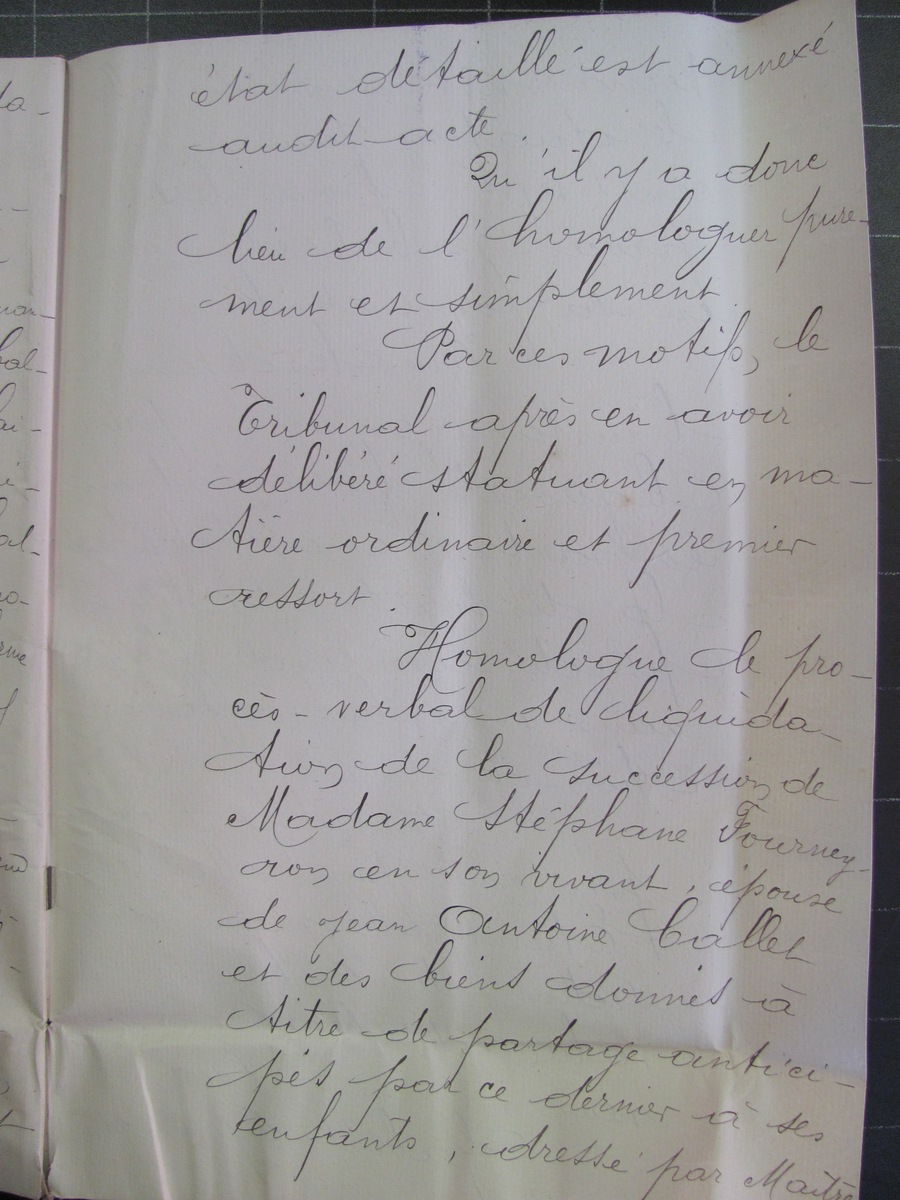 état detaillé est annexé
audit acte.
Qu'il y a donc
lieu de l'homologuer pure-
ment et simplement.
Par ces motifs, le
Tribunal après en avoir
délibéré statuant en ma-
tière ordinaire et premier
ressort.
Homologue le pro-
cès-verbal de liquida-
tion de la succession de
Madame Stéphane Fourney-
ron en son vivant, épouse
de Jean Antoine Callet
et des biens donnés à
titre de partage antici-
pés par ce dernier à ses
enfants, dressé par Maître